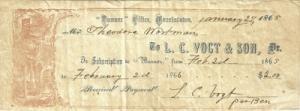 "Banner" Office, January 24 1865
Mr. Theodore Workman
To L. C. VOGT & SON, Dr.
To Subscription to "Banner" from Feb. 2d 1865
to February 2d 1866 $2.00
Received Payment L C Vogt